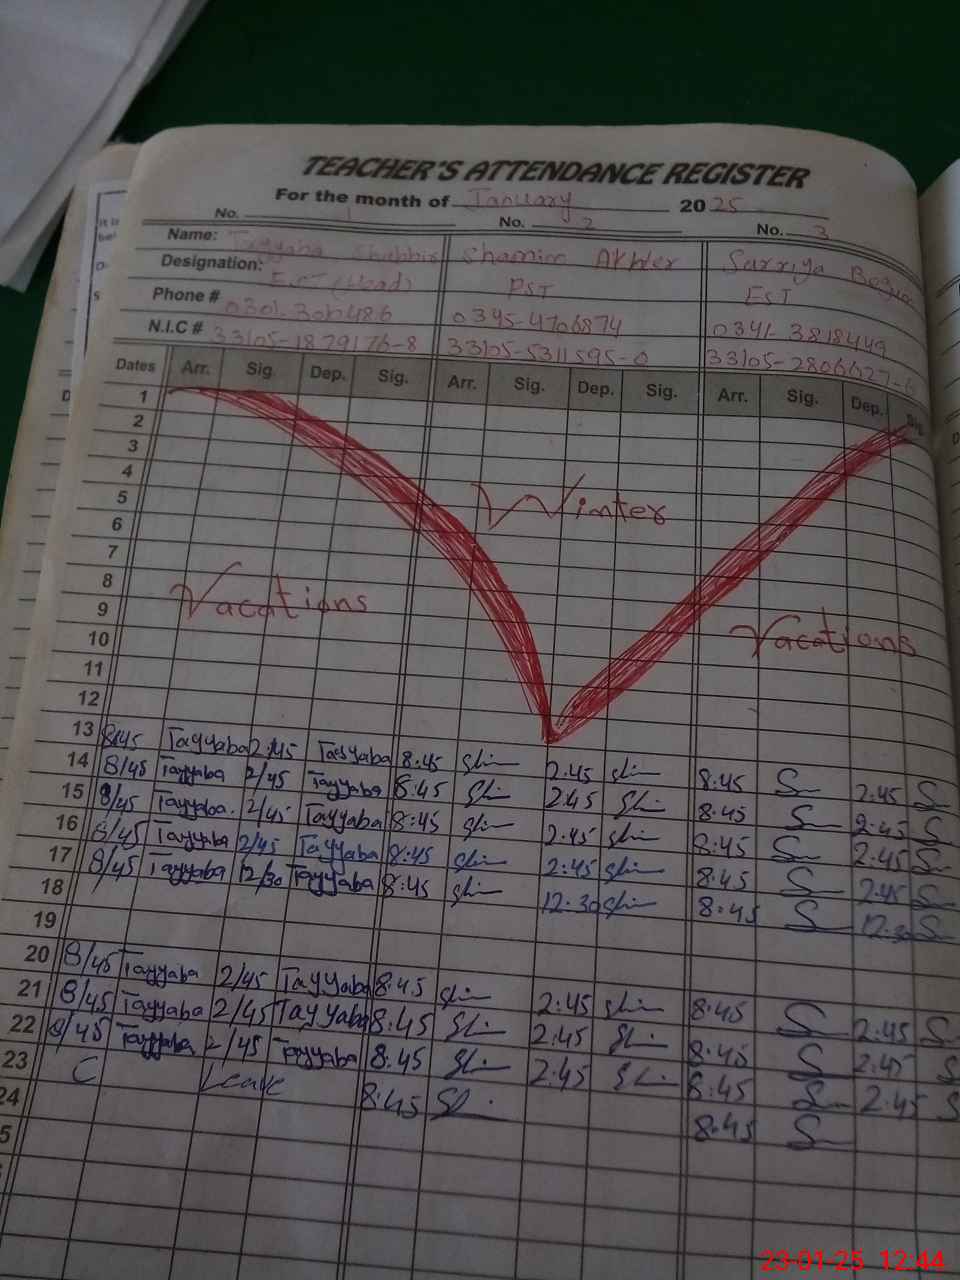 TEACHER'S ATTENDANCE REGISTER
For the month of January 2025
No. 1 No. 2 No. 3
Name: Tayyaba Shabbir Shamim Akhter Surriya
Designation: (Head) PST EST
Phone # 0345-4706874 0341-3818449
N.I.C # 33105-1879176-8 33105-5311595-0
Dates Arr. Sig. Dep. Sig. Arr. Sig. Dep. Sig. Arr. Sig. Dep. Sig.
1
2
3
4
5 Winter
6
7
8
9 Vacations
10 Vacations
11
12
13 8/45 Tayyaba 2/45 Tayyaba 8:45 2:45 8:45 2:45
14 8/45 Tayyaba 2/45 Tayyaba 8:45 2:45 8:45 2:45
15 8/45 Tayyaba. 2/45 Tayyaba 8:45 2:45 8:45 2:45
16 8/45 Tayyaba 2/45 Tayyaba 8:45 2:45 8:45 2:45
17 8/45 Tayyaba 12/30 Tayyaba 8:45 12:30 8:45 12:30
18
19
20 8/45 Tayyaba 2/45 Tayyaba 8:45 2:45 8:45 2:45
21 8/45 Tayyaba 2/45 Tayyaba 8:45 2:45 8:45 2:45
22 8/45 Tayyaba 2/45 Tayyaba 8:45 2:45 8:45 2:45
23 C Leave 8:45 8:45
24
5
23-01-25 12:44